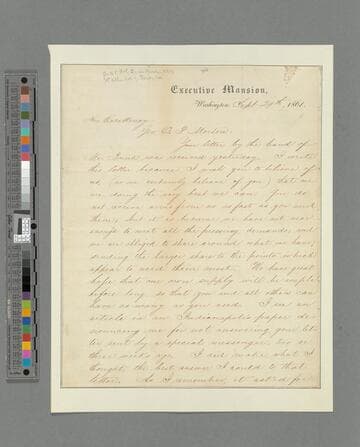 Executive Mansion,
Washington, Sept. 29th, 1861.
His Excellency
Gov. O. P. Morton
Your letter by the hand of
Mr. Prunk was received yesterday. I write
this letter because I wish you to believe of
us, (as we certainly believe of you) that we
are doing the very best we can. You do
not receive arms from us as fast as you need
them; but it is because we have not near
enough to meet all the pressing demands; and
we are obliged to share around what we have,
sending the larger share to the points which
appear to need them most. We have great
hope that our own supply will be ample
before long, so that you and all others can
have as many as you need. I see an
article in an Indianapolis paper de-
nouncing me for not answering your let-
ter sent by a special messenger two or
three weeks ago. I did make what I
thought the best answer I could to that
letter. As I remember, it asked for